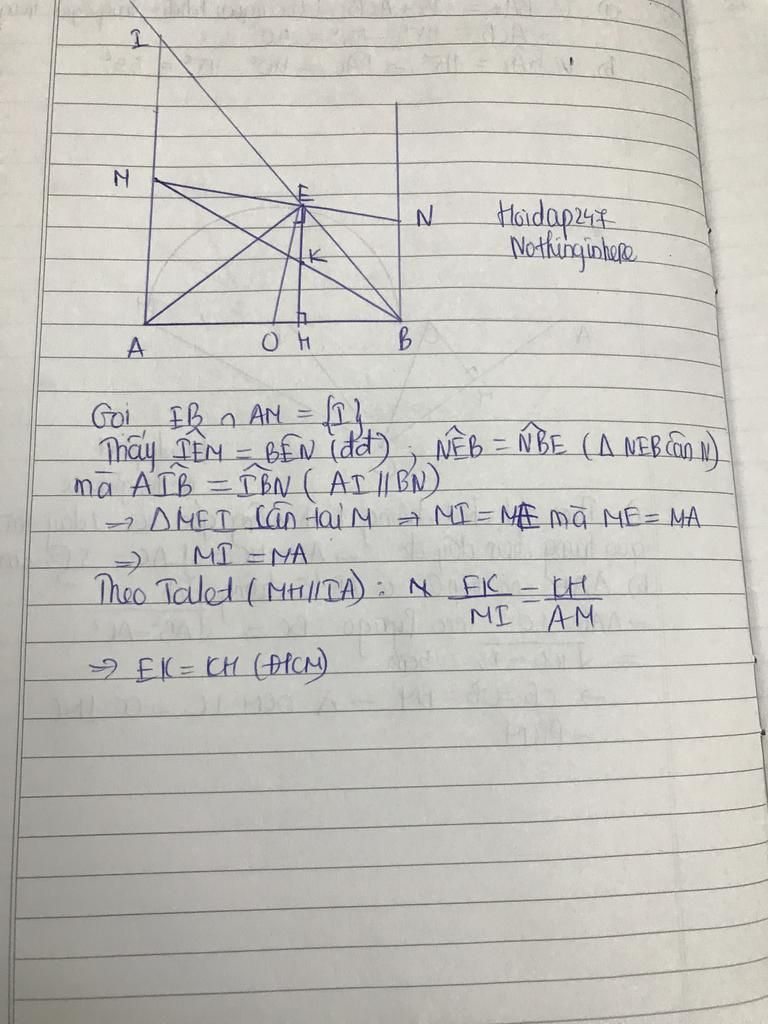 I
M
E
N
Hoidap247
K
Nothinginhere
A
O
H
B
Gọi EB ∩ AM = {I}
Thấy IÊM = BÊN (đđ) ; NÊB = NB̂E (Δ NEB cân N)
mà AÎB = IB̂N ( AI // BN)
→ Δ MEI cân tại M ⇒ MI = ME mà ME = MA
⇒ MI = MA
Theo Talet ( MH // IA) : EK/MI = KH/AM
⇒ EK = KH (ĐPCM)